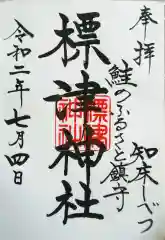 奉拝
鮭のふるさと鎮守
知床しべつ
標津神社
令和二年七月四日